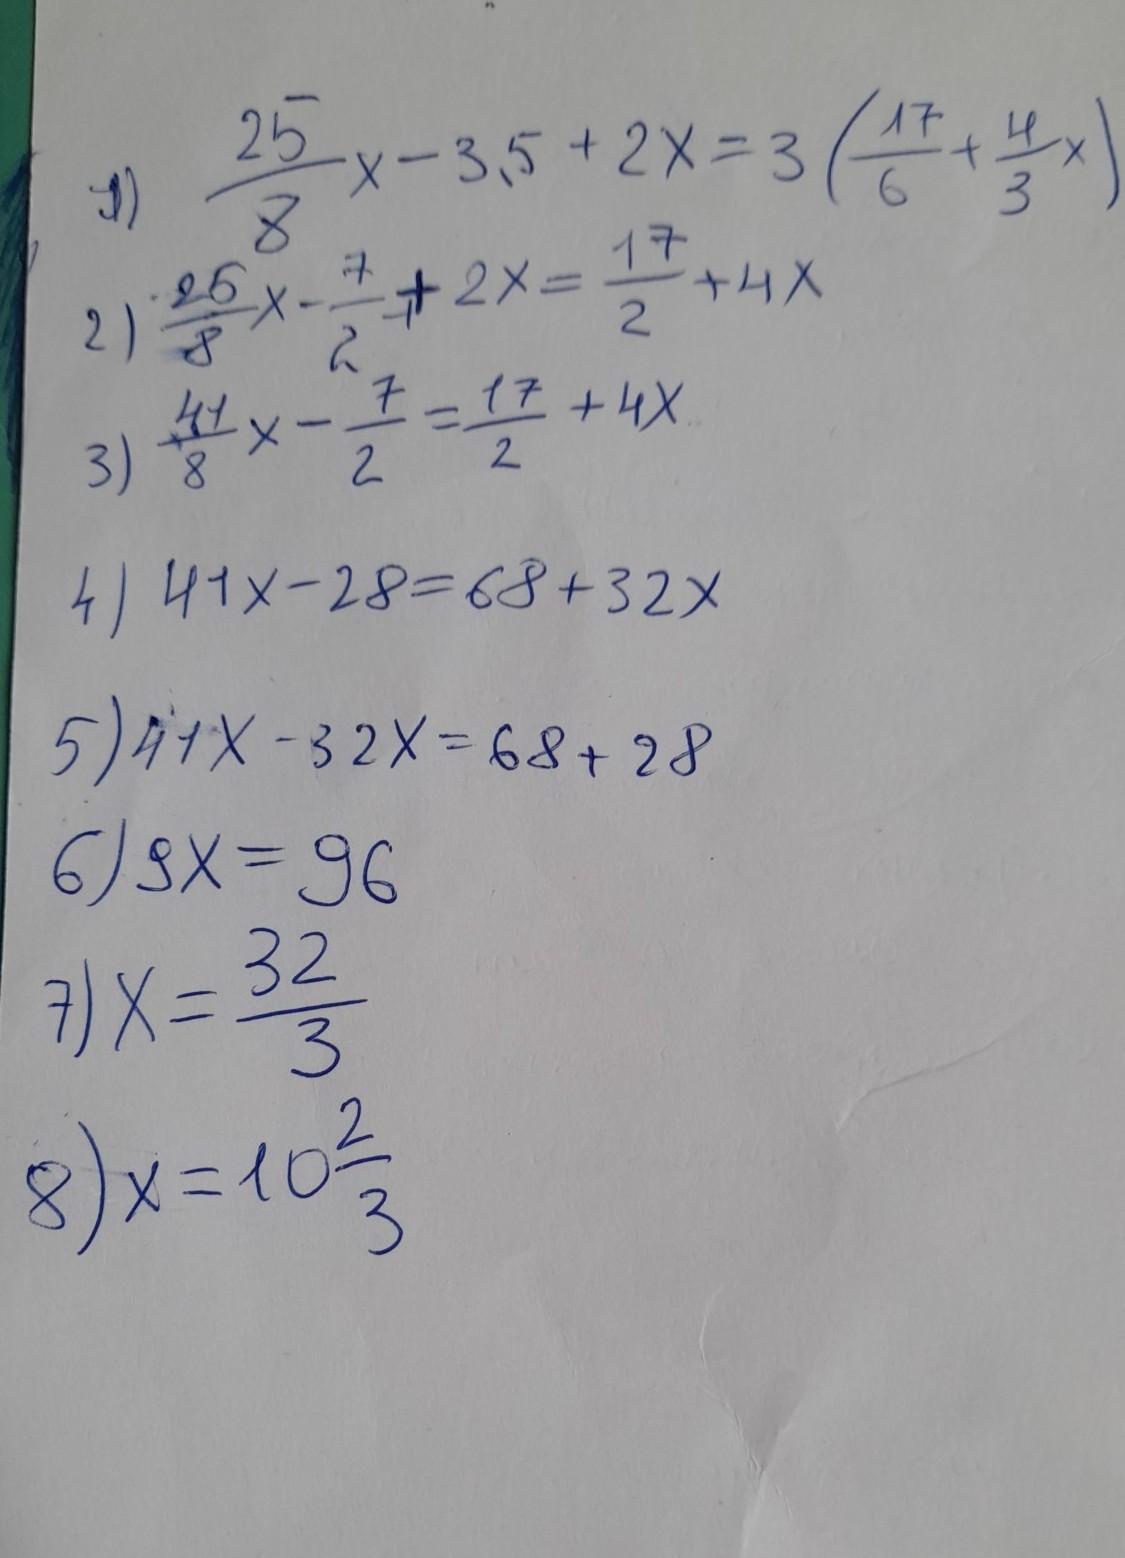 1) 25/8 x - 3,5 + 2x = 3 (17/6 + 4/3 x)
2) 25/8 x - 7/2 + 2x = 17/2 + 4x
3) 41/8 x - 7/2 = 17/2 + 4x
4) 41x - 28 = 68 + 32x
5) 41x - 32x = 68 + 28
6) 9x = 96
7) x = 32/3
8) x = 10 2/3